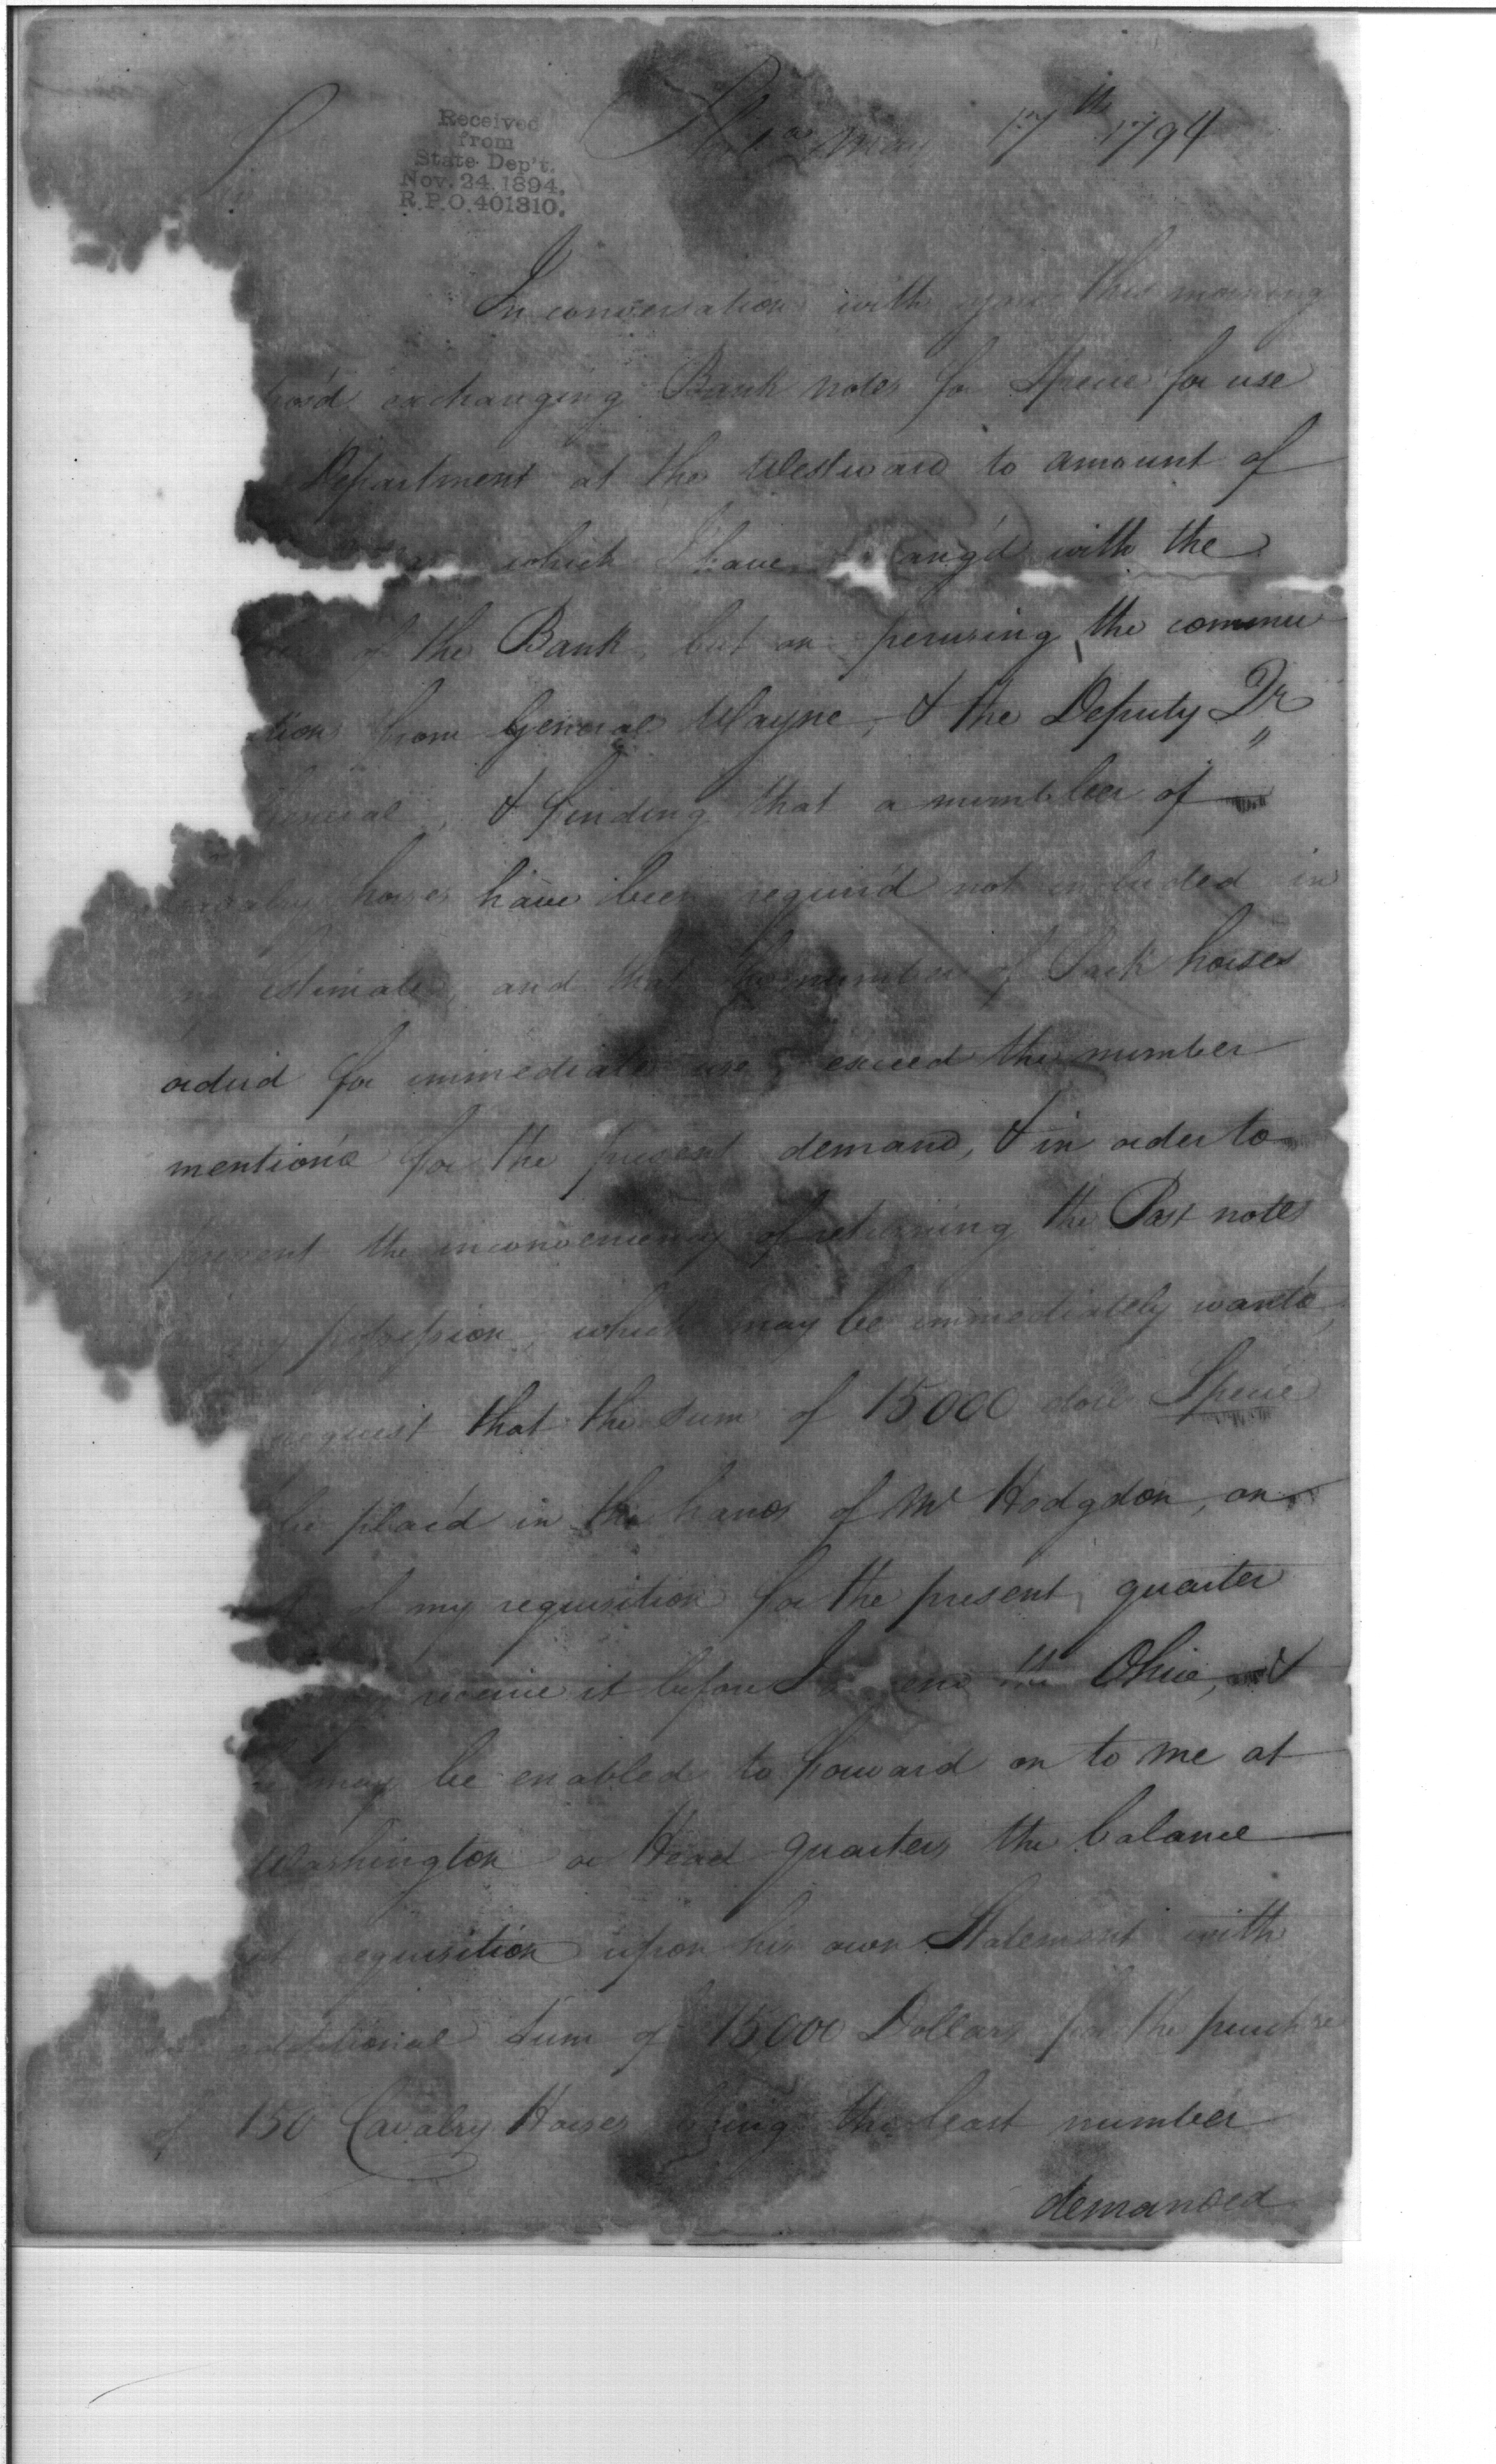 Received
from
State Dep't.
Nov. 24. 1894.
R.P.O. 401810.
17th 1794
In conversation with you this morning
exchanging Bank notes for Specie for use
Department at the Westward to amount of
which I have ang'd with the
of the Bank, but on perusing the commu
tion from General Wayne, & the Deputy Qr
General, & finding that a number of
horses have been requir'd not included in
estimate, and that the number of Pack horses
orderd for immediate use exceed the number
mention'd for the present demand, & in order to
prevent the inconveniency of returning the Post notes
my possession, which may be immediately wanted,
request that the sum of 15000 dolls Specie
be plac'd in the hands of Mr Hodgdon, on
of my requisition for the present quarter
receive it before I the Ohio, &
may be enabled to forward on to me at
Washington or Head Quarters the balance
requisition upon his own Statement with
additional Sum of 15,000 Dollars for the purchse
of 150 Cavalry Horses being the least number
demanded